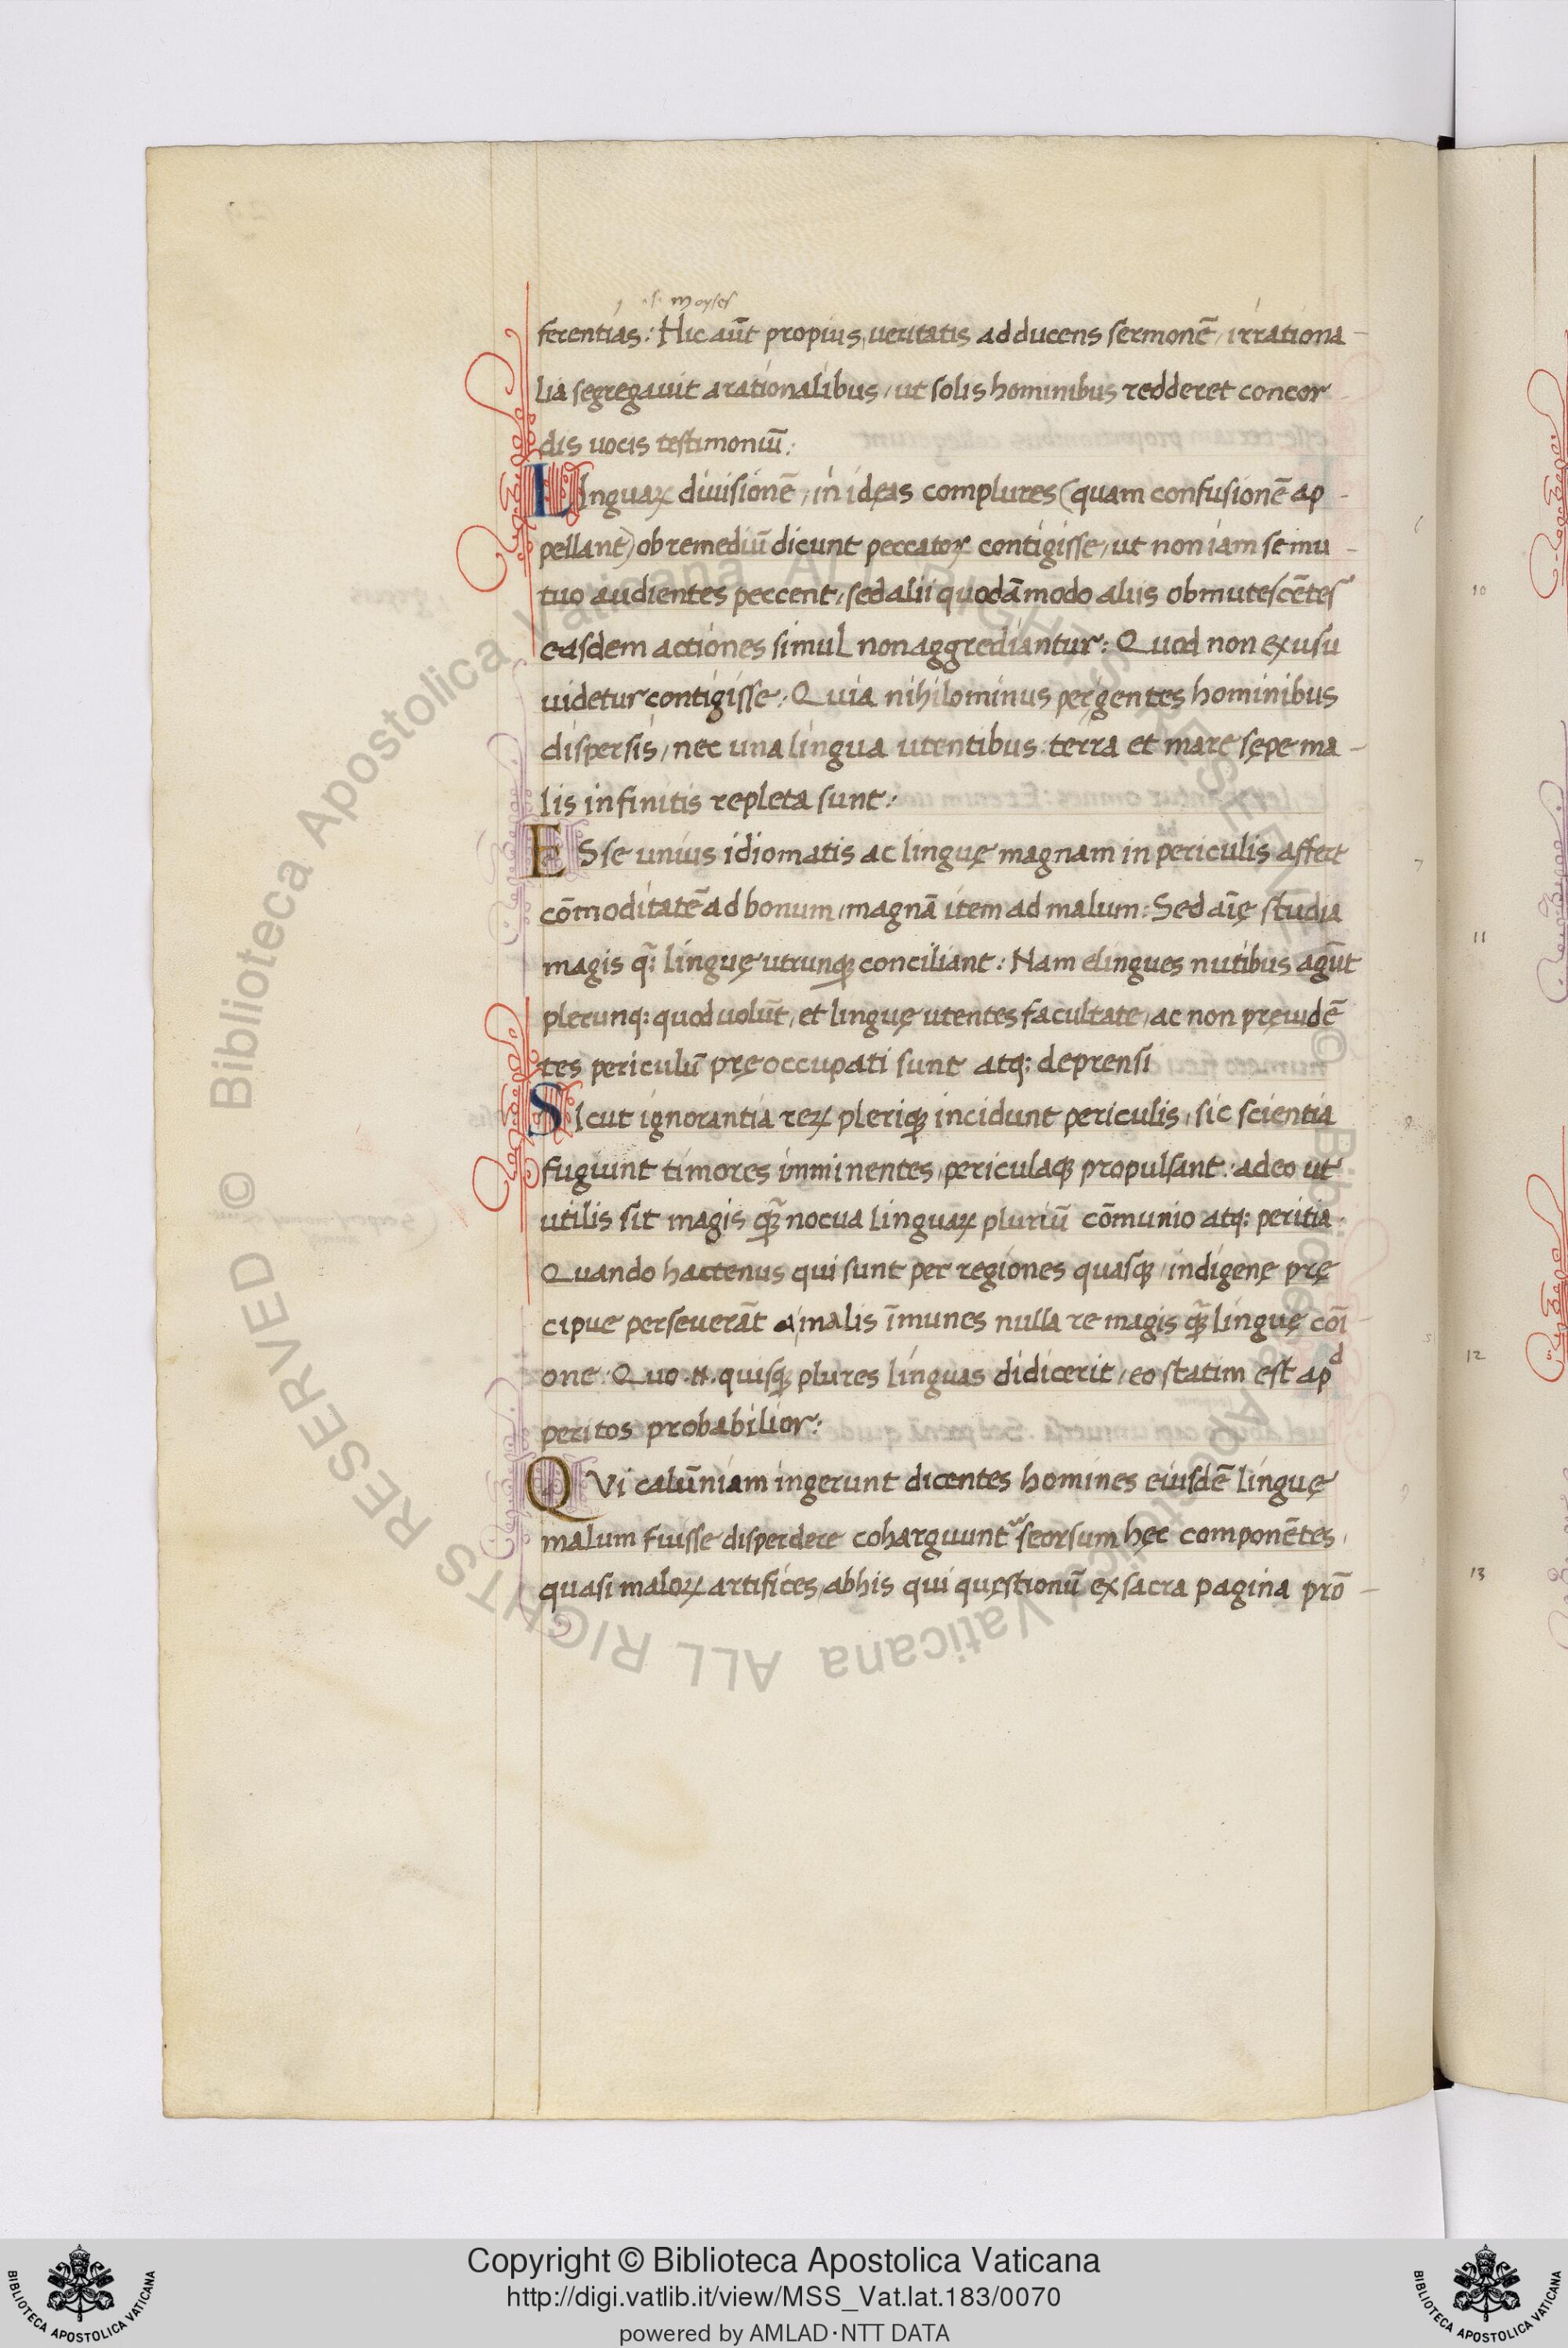 .s. moyses
ferentias: Hic aūt propius ueritatis adducens sermonē, irrationa-
lia segregauit a rationalibus, ut solis hominibus redderet concor-
dis uocis testimoniū:
Linguaꝝ diuisionē, in idęas complures (quam confusionē ap-
pellant) ob remediū dicunt peccatoꝝ contigisse, ut non iam se mu-
tuo audientes peccent, sed alii quodāmodo aliis obmutescētes
easdem actiones simul non aggrediantur: Quod non ex usu
uidetur contigisse: Quia nihilominus per gentes hominibus
dispersis, nec una lingua utentibus: terra et mare sępe ma-
lis infinitis repleta sunt:
ESse unius idiomatis ac linguę magnam in periculis affert
cōmoditatē ad bonum, magnā item ad malum: Sed aīę studia
magis q̄: linguę utrunqꝫ conciliant: Nam elingues nutibus agūt
plerunq: quod uolūt, et linguę utentes facultate, ac non pręuidē
tes periculū pręoccupati sunt atq: deprensi
SIcut ignorantia reꝝ pleriqꝫ incidunt periculis, sic scientia
fugiunt timores imminentes, periculaqꝫ propulsant: adeo ut
utilis sit magis qꝫ̄ nocua linguaꝝ pluriū cōmunio atq: peritia.
Quando hactenus qui sunt per regiones quasqꝫ, indigenę prę
cipue perseuerāt a malis īmunes nulla re magis qꝫ̄ linguę coī-
one: Quo .n. quisqꝫ plures linguas didicerit, eo statim est apd
peritos probabilior:
QVi calūniam ingerunt dicentes homines eiusdē linguę
malum fuisse disperdere coharguunt seorsum hęc componētes,
quasi maloꝝ artifices, ab his qui quęstionū ex sacra pagina prō-
10
11
12
13
© Biblioteca Apostolica Vaticana ALL RIGHTS RESERVED © Biblioteca Apostolica Vaticana ALL RIGHTS RESERVED
Copyright © Biblioteca Apostolica Vaticana
http://digi.vatlib.it/view/MSS_Vat.lat.183/0070
powered by AMLAD·NTT DATA
BIBLIOTECA APOSTOLICA VATICANA
BIBLIOTECA APOSTOLICA VATICANA